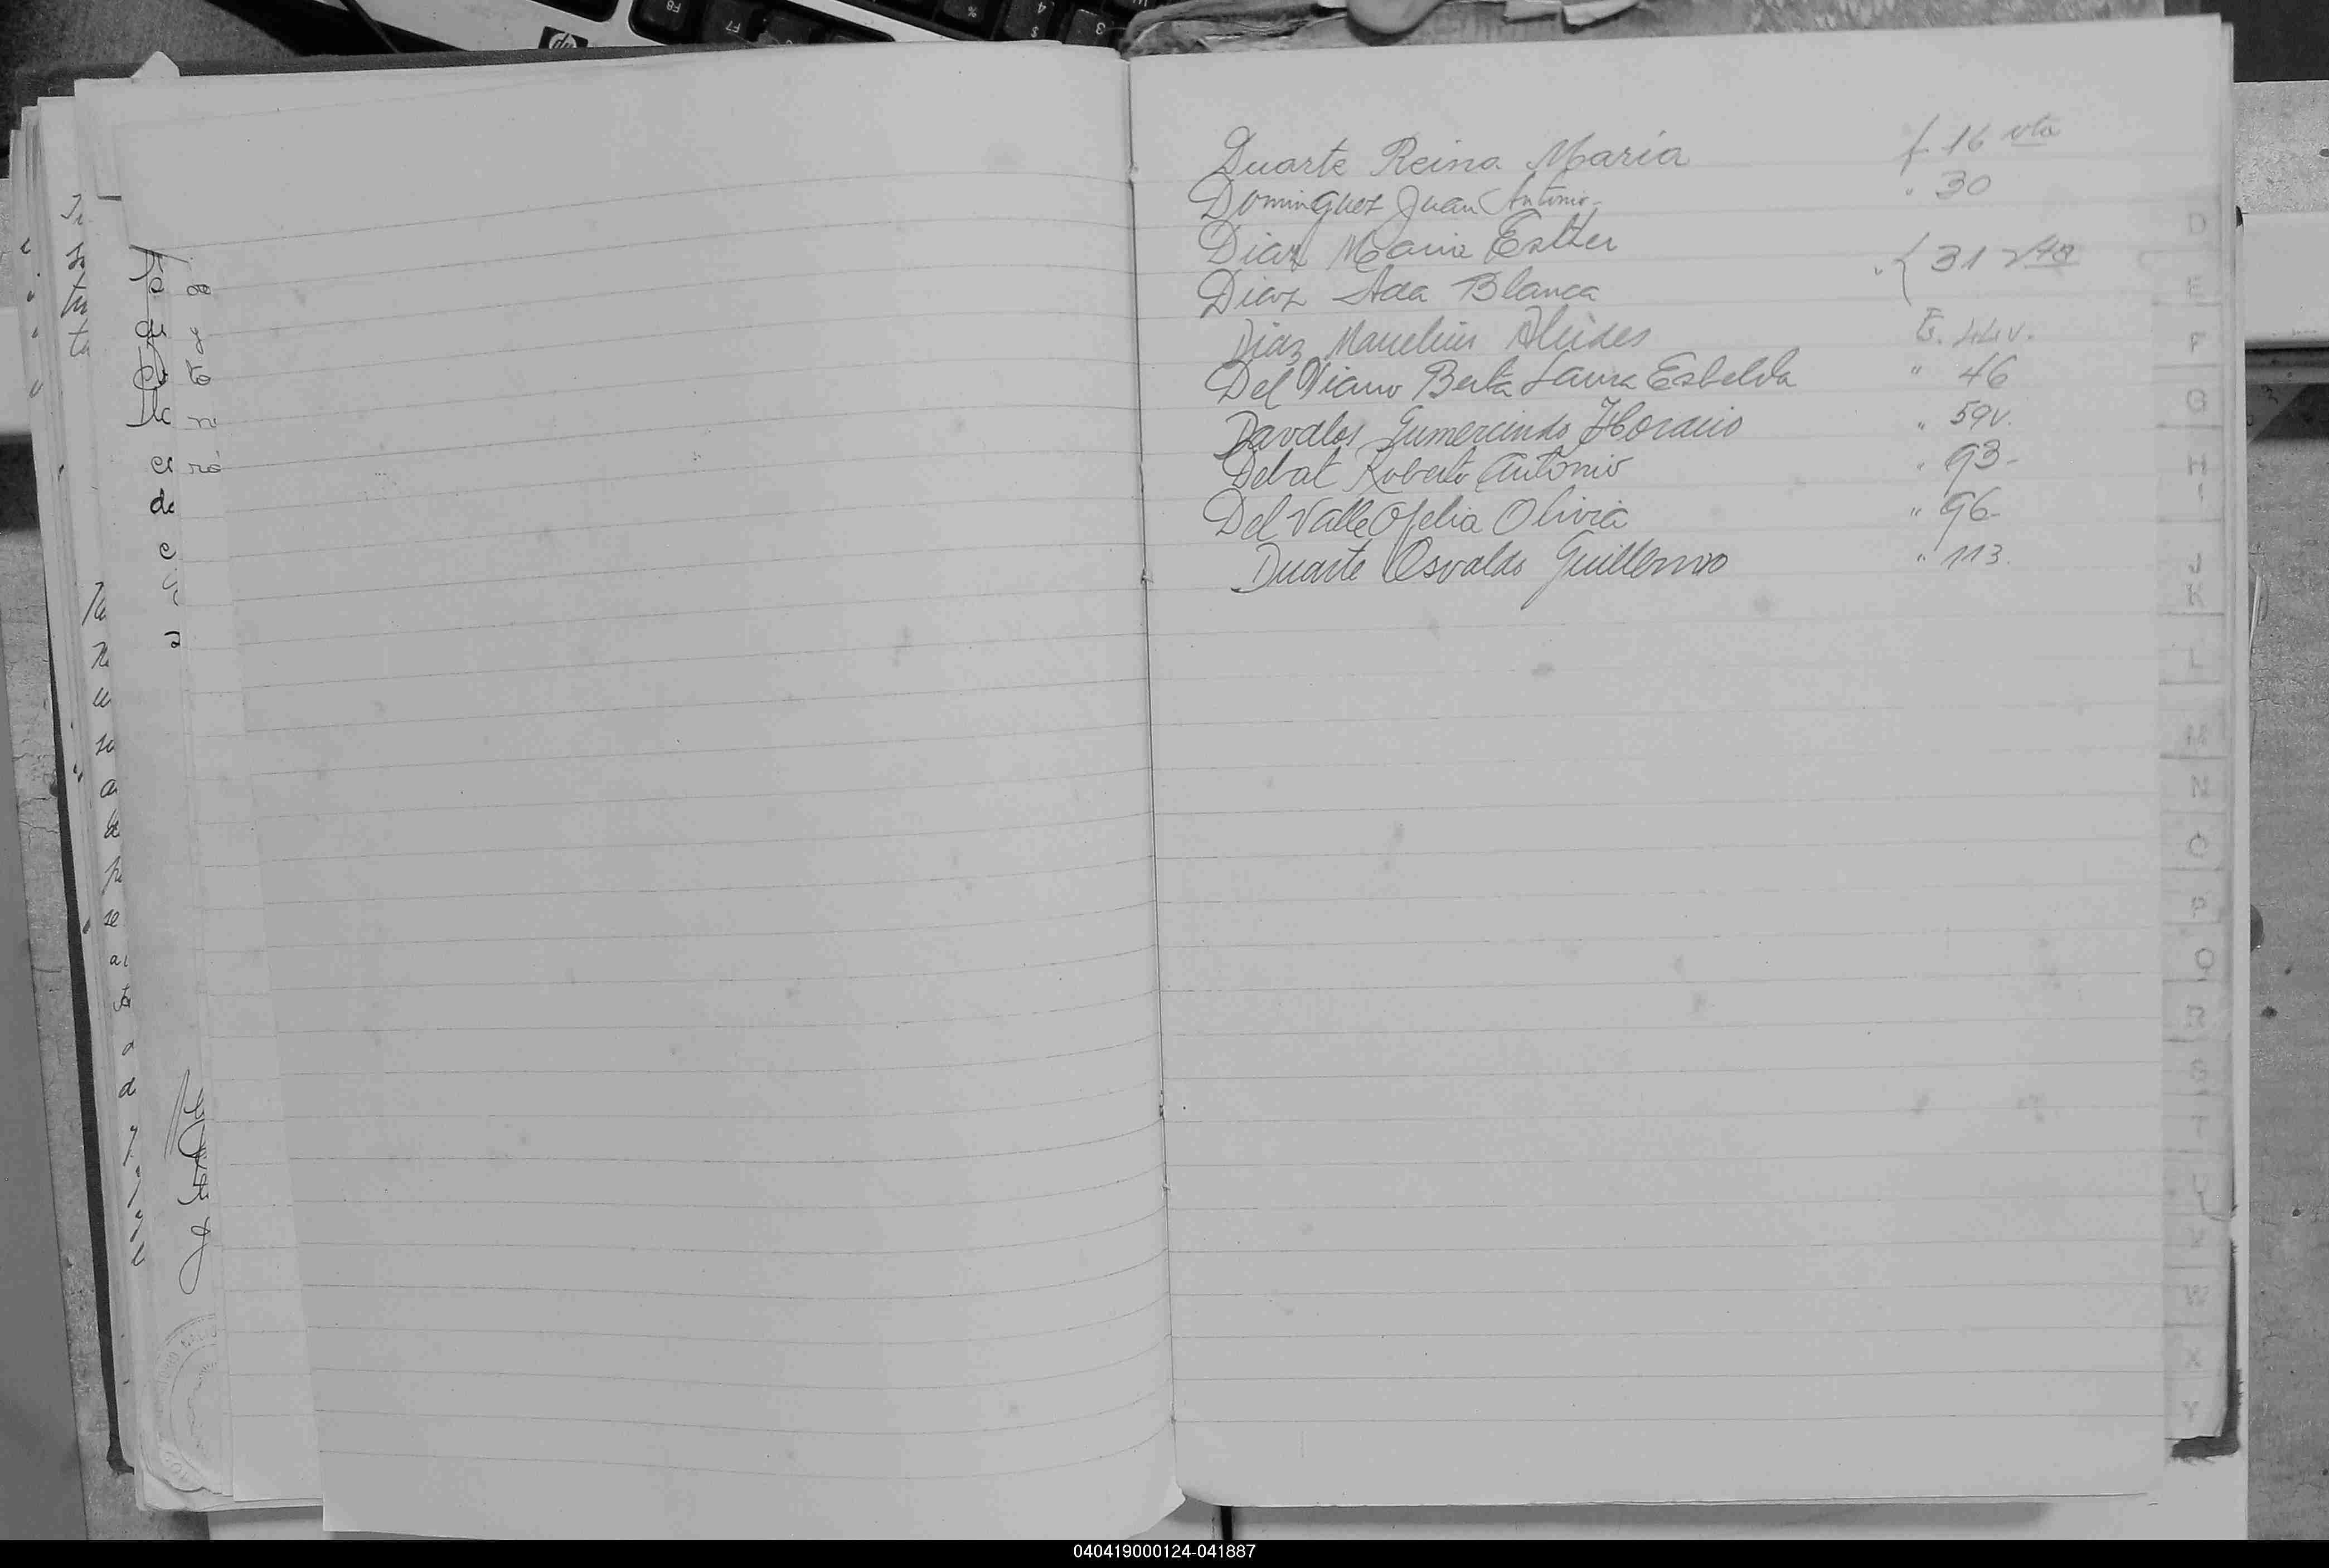 Duarte Reina María f. 16 vta
Dominguez Juan Antonio- " 30
Diaz Maria Esther
" { 31 vta
Diaz Ada Blanca
Diaz Alcides F. 44v.
Del Viano Berta Laura Esbelda " 46
Davalos Gumercindo Horacio " 59v.
Debat Roberto Antonio " 93-
Del Valle Ofelia Olivia " 96-
Duarte Osvaldo Guillermo " 113.
D
E
F
G
H
I
J
K
L
M
N
O
P
Q
R
S
T
U
V
W
X
Y
040419000124-041887